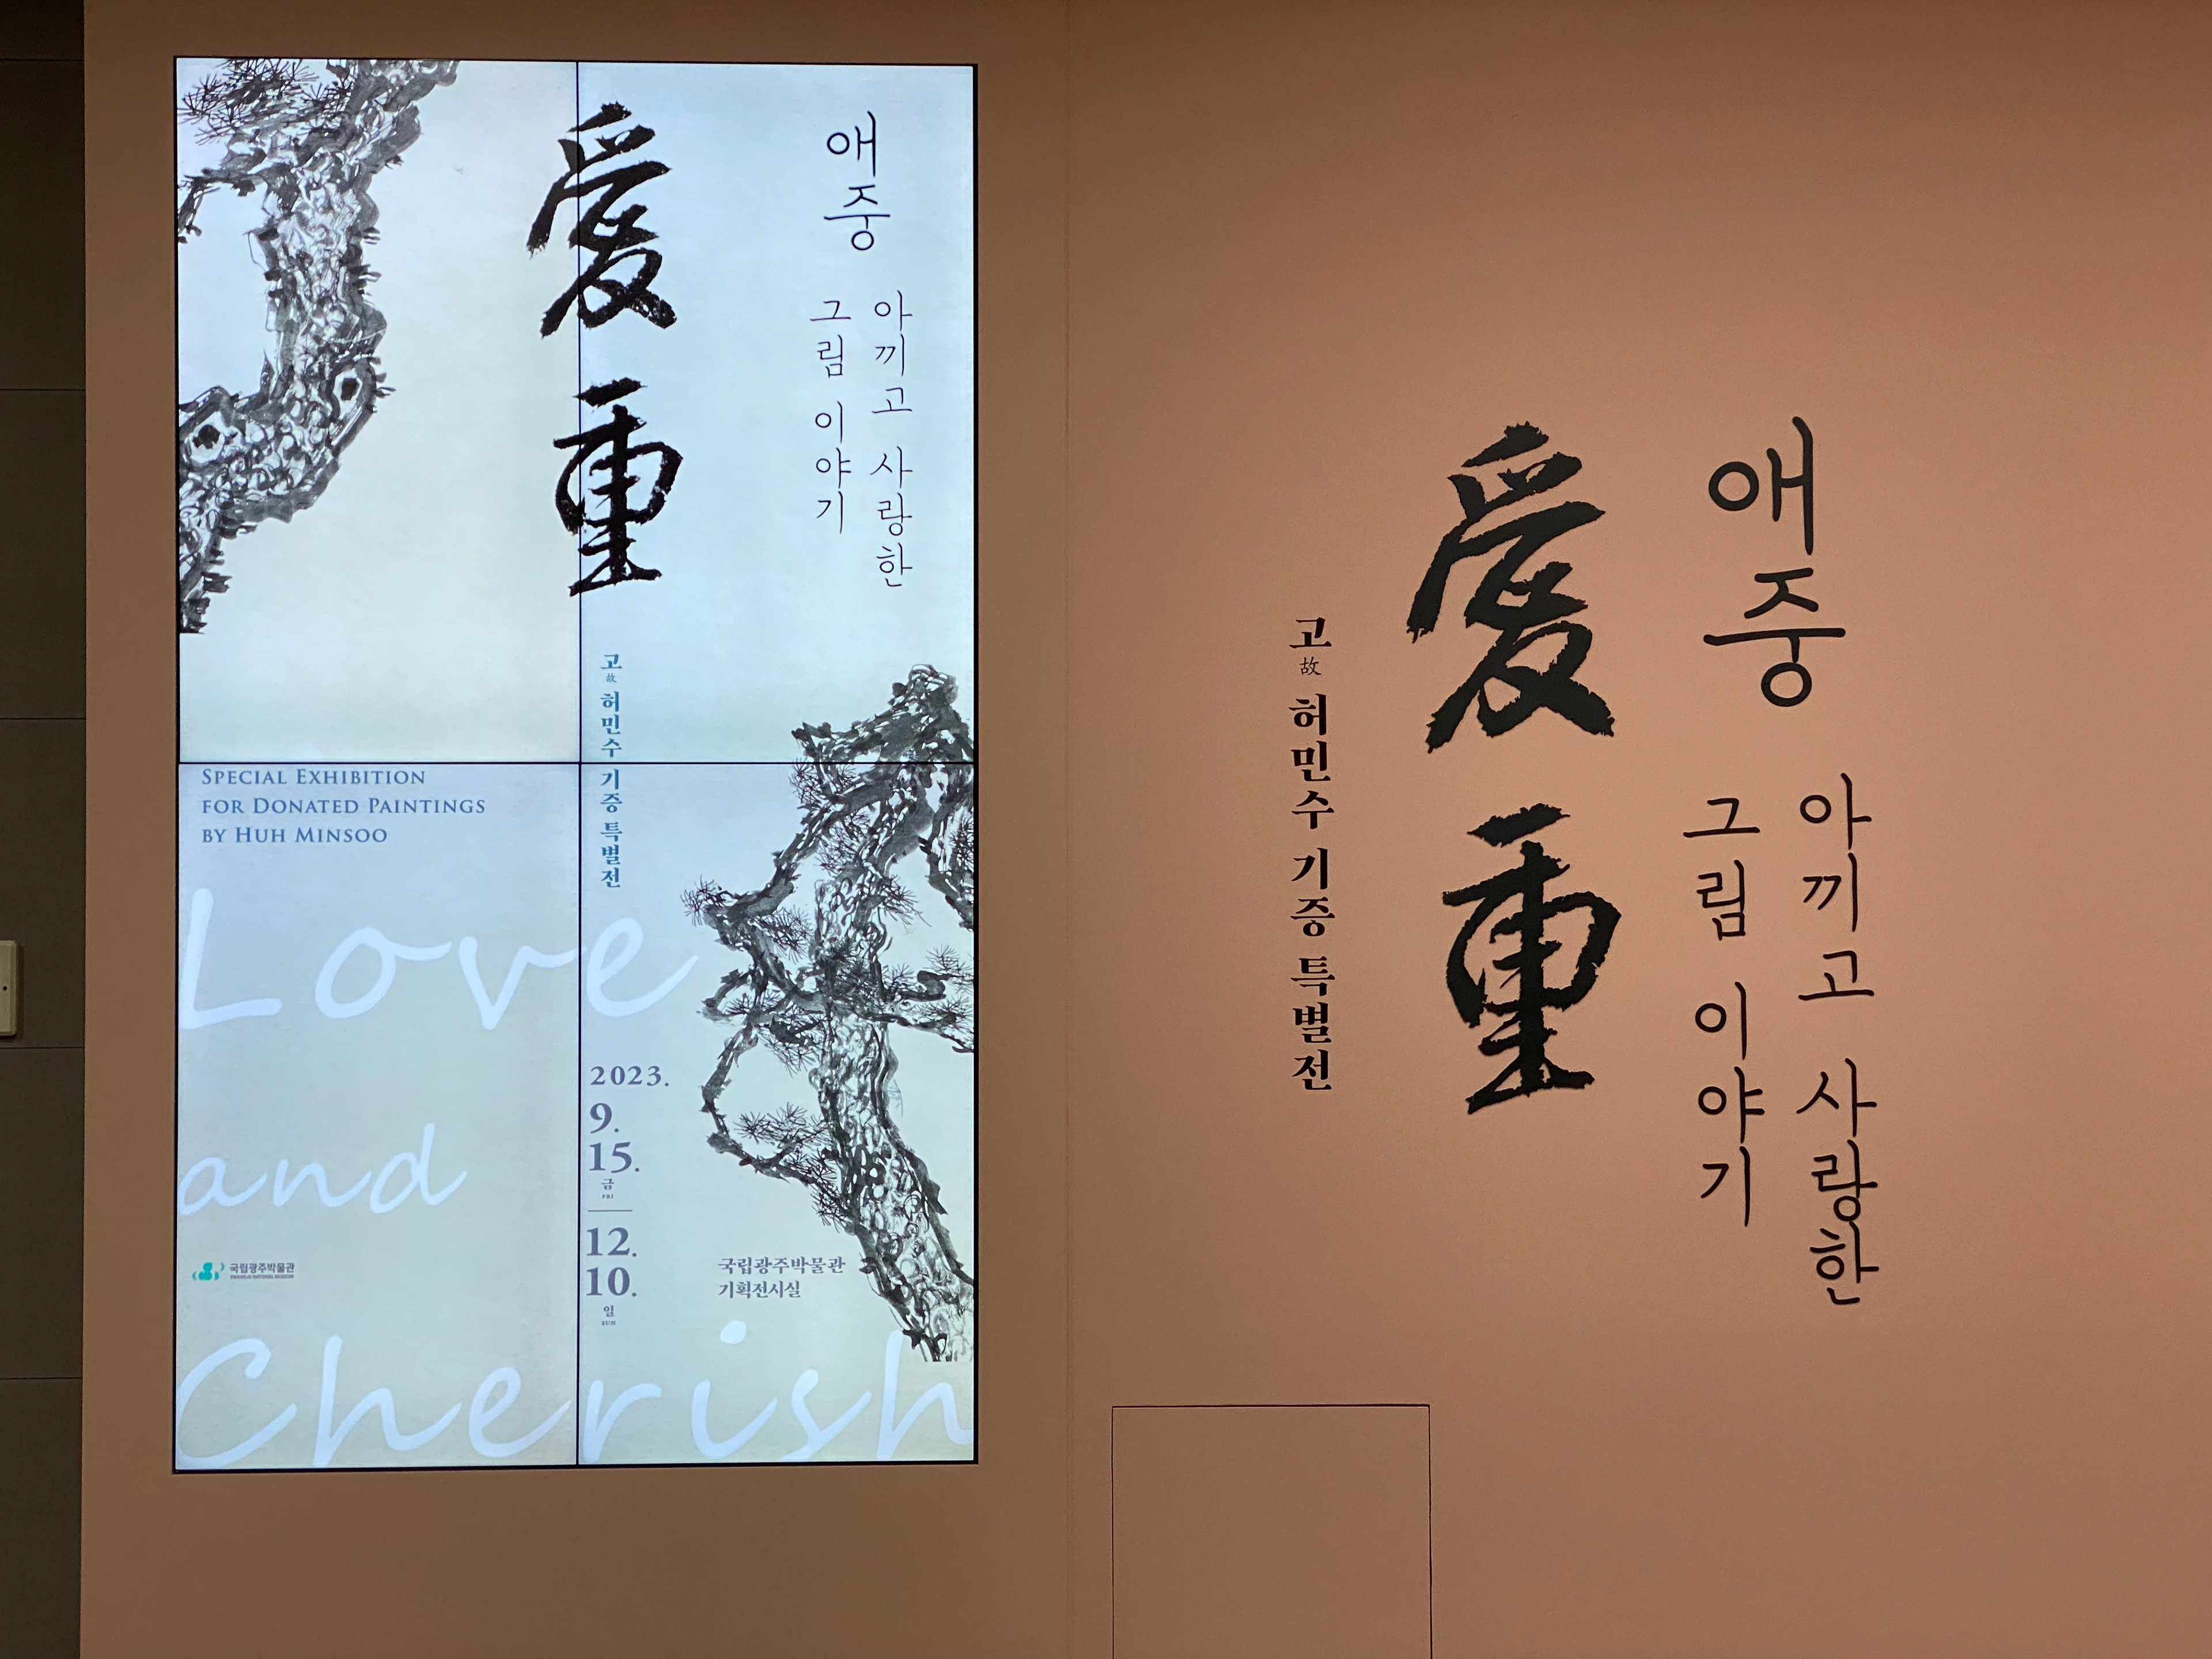 애중
아끼고 사랑한
그림 이야기
愛重
고故 허민수 기증 특별전
SPECIAL EXHIBITION
FOR DONATED PAINTINGS
BY HUH MINSOO
Love
and
Cherish
2023.
9.
15.
금
FRI
12.
10.
일
SUN
국립광주박물관
기획전시실
국립광주박물관
GWANGJU NATIONAL MUSEUM
애중
아끼고 사랑한
그림 이야기
愛重
고故 허민수 기증 특별전